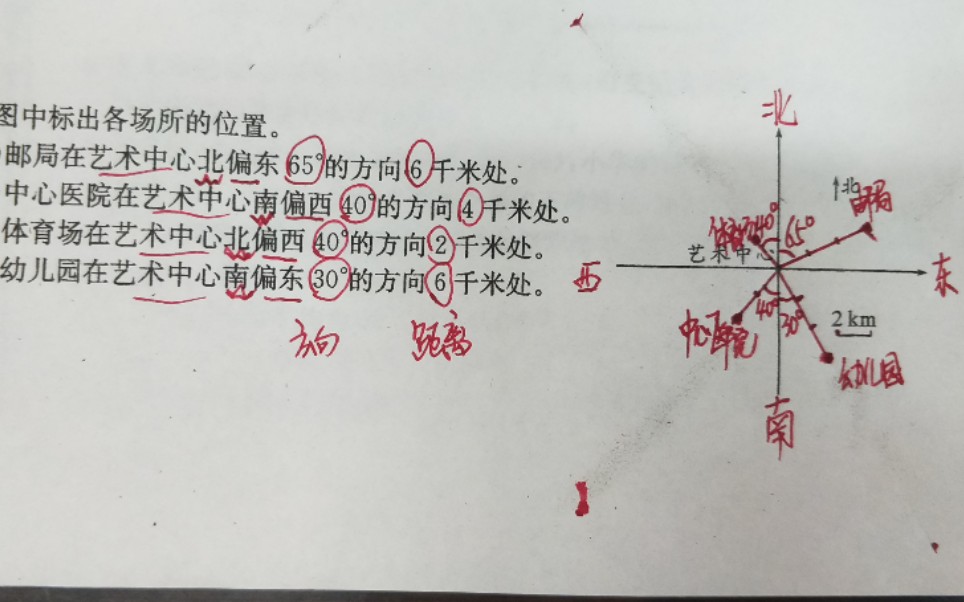 图中标出各场所的位置。
邮局在艺术中心北偏东65°的方向6千米处。
中心医院在艺术中心南偏西40°的方向4千米处。
体育场在艺术中心北偏西40°的方向2千米处。
幼儿园在艺术中心南偏东30°的方向6千米处。
方向 距离
北
北
邮局
体育场 40° 65°
艺术中心
西 东
40° 30°
2 km
中心医院
幼儿园
南